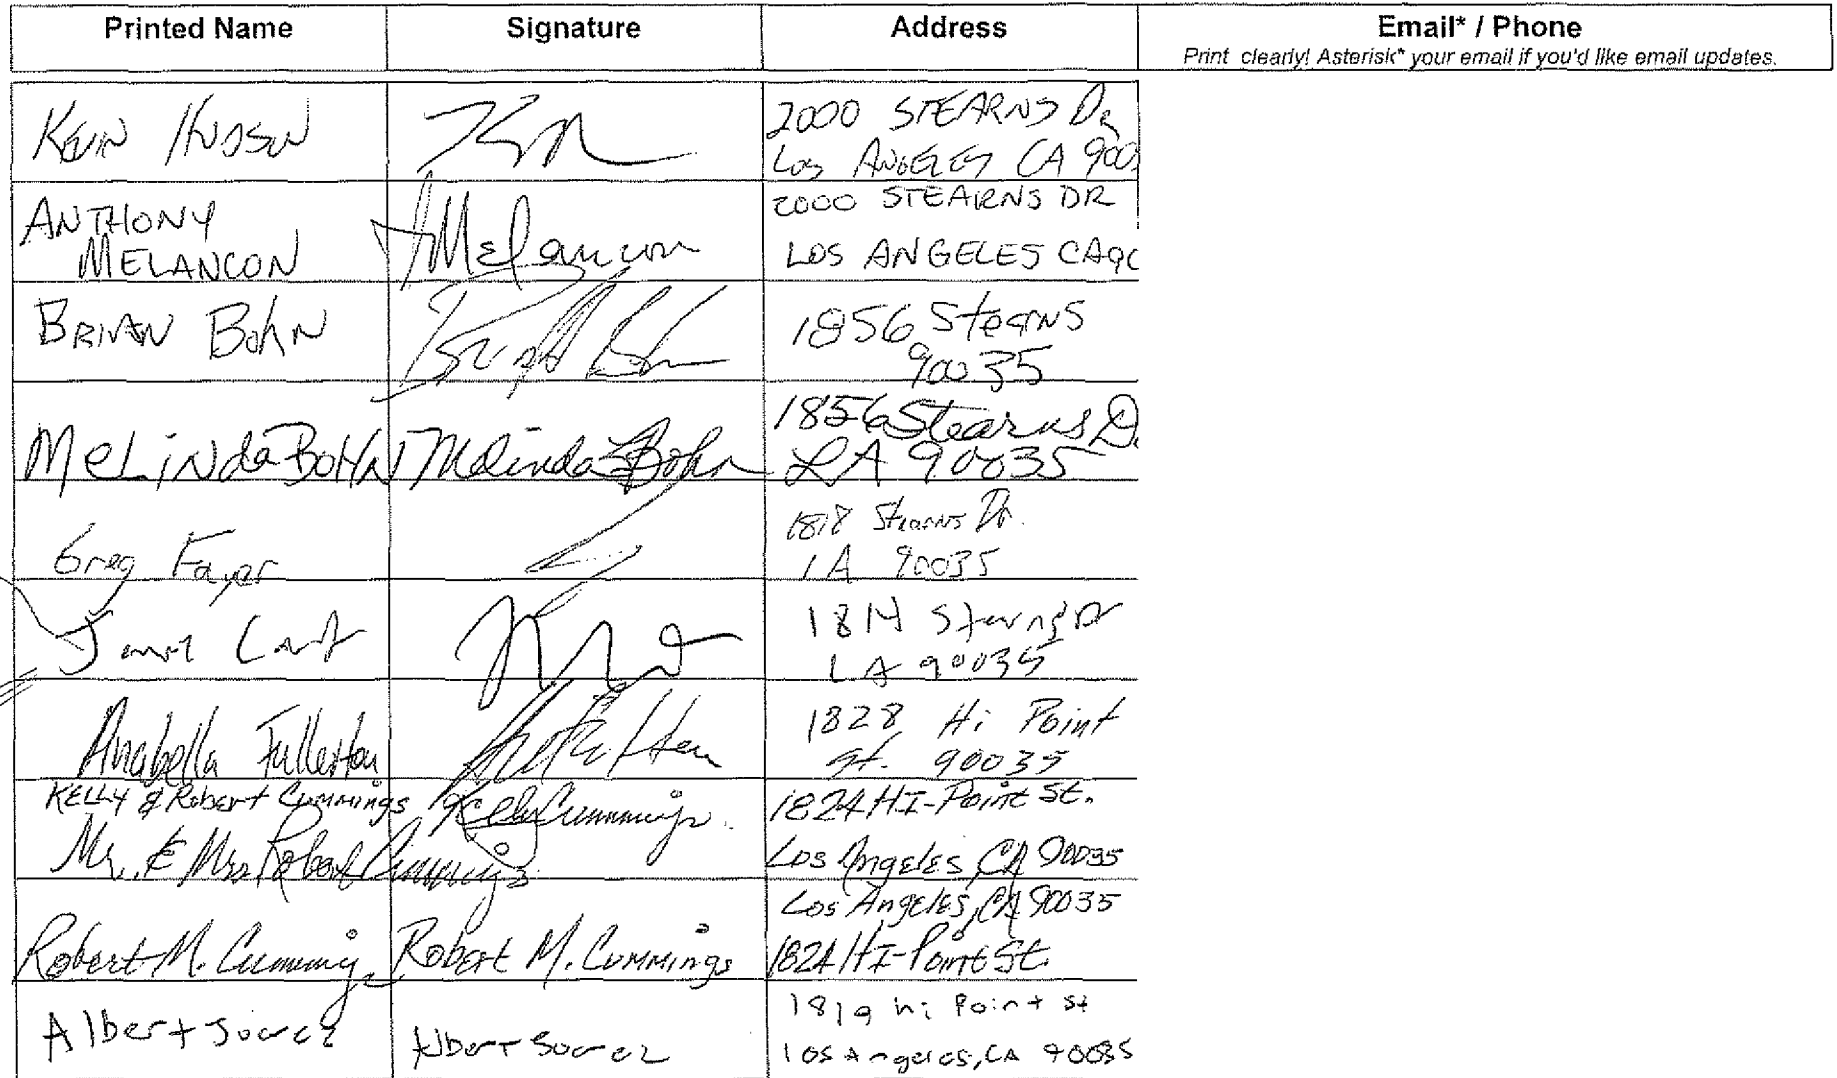 Printed Name Signature Address Email* / Phone
Print clearly! Asterisk* your email if you'd like email updates.
KEVIN HUDSON 2000 STEARNS DR
LOS ANGELES CA 900
ANTHONY 2000 STEARNS DR
MELANCON AMelancon LOS ANGELES CA90
BRIAN BOHN 1856 Stearns
90035
MELiNda BOHN Melinda Bohn 1856 Stearns D
LA 90035
Greg Fayer 1818 Stearns Dr.
LA 90035
1814 Stearns Dr
LA 90035
Anabella Fullerton 1828 Hi Point
St. 90035
KELLY & Robert Cummings Kelly Cummings 1824 HI-Point St.
Mr. & Mrs Robert Cummings Los Angeles, CA 90035
Los Angeles, CA 90035
Robert M. Cummings Robert M. Cummings 1824 HI-Point St.
Albert Suarez Albert Suarez 1819 hi Point st
Los Angeles, CA 90035